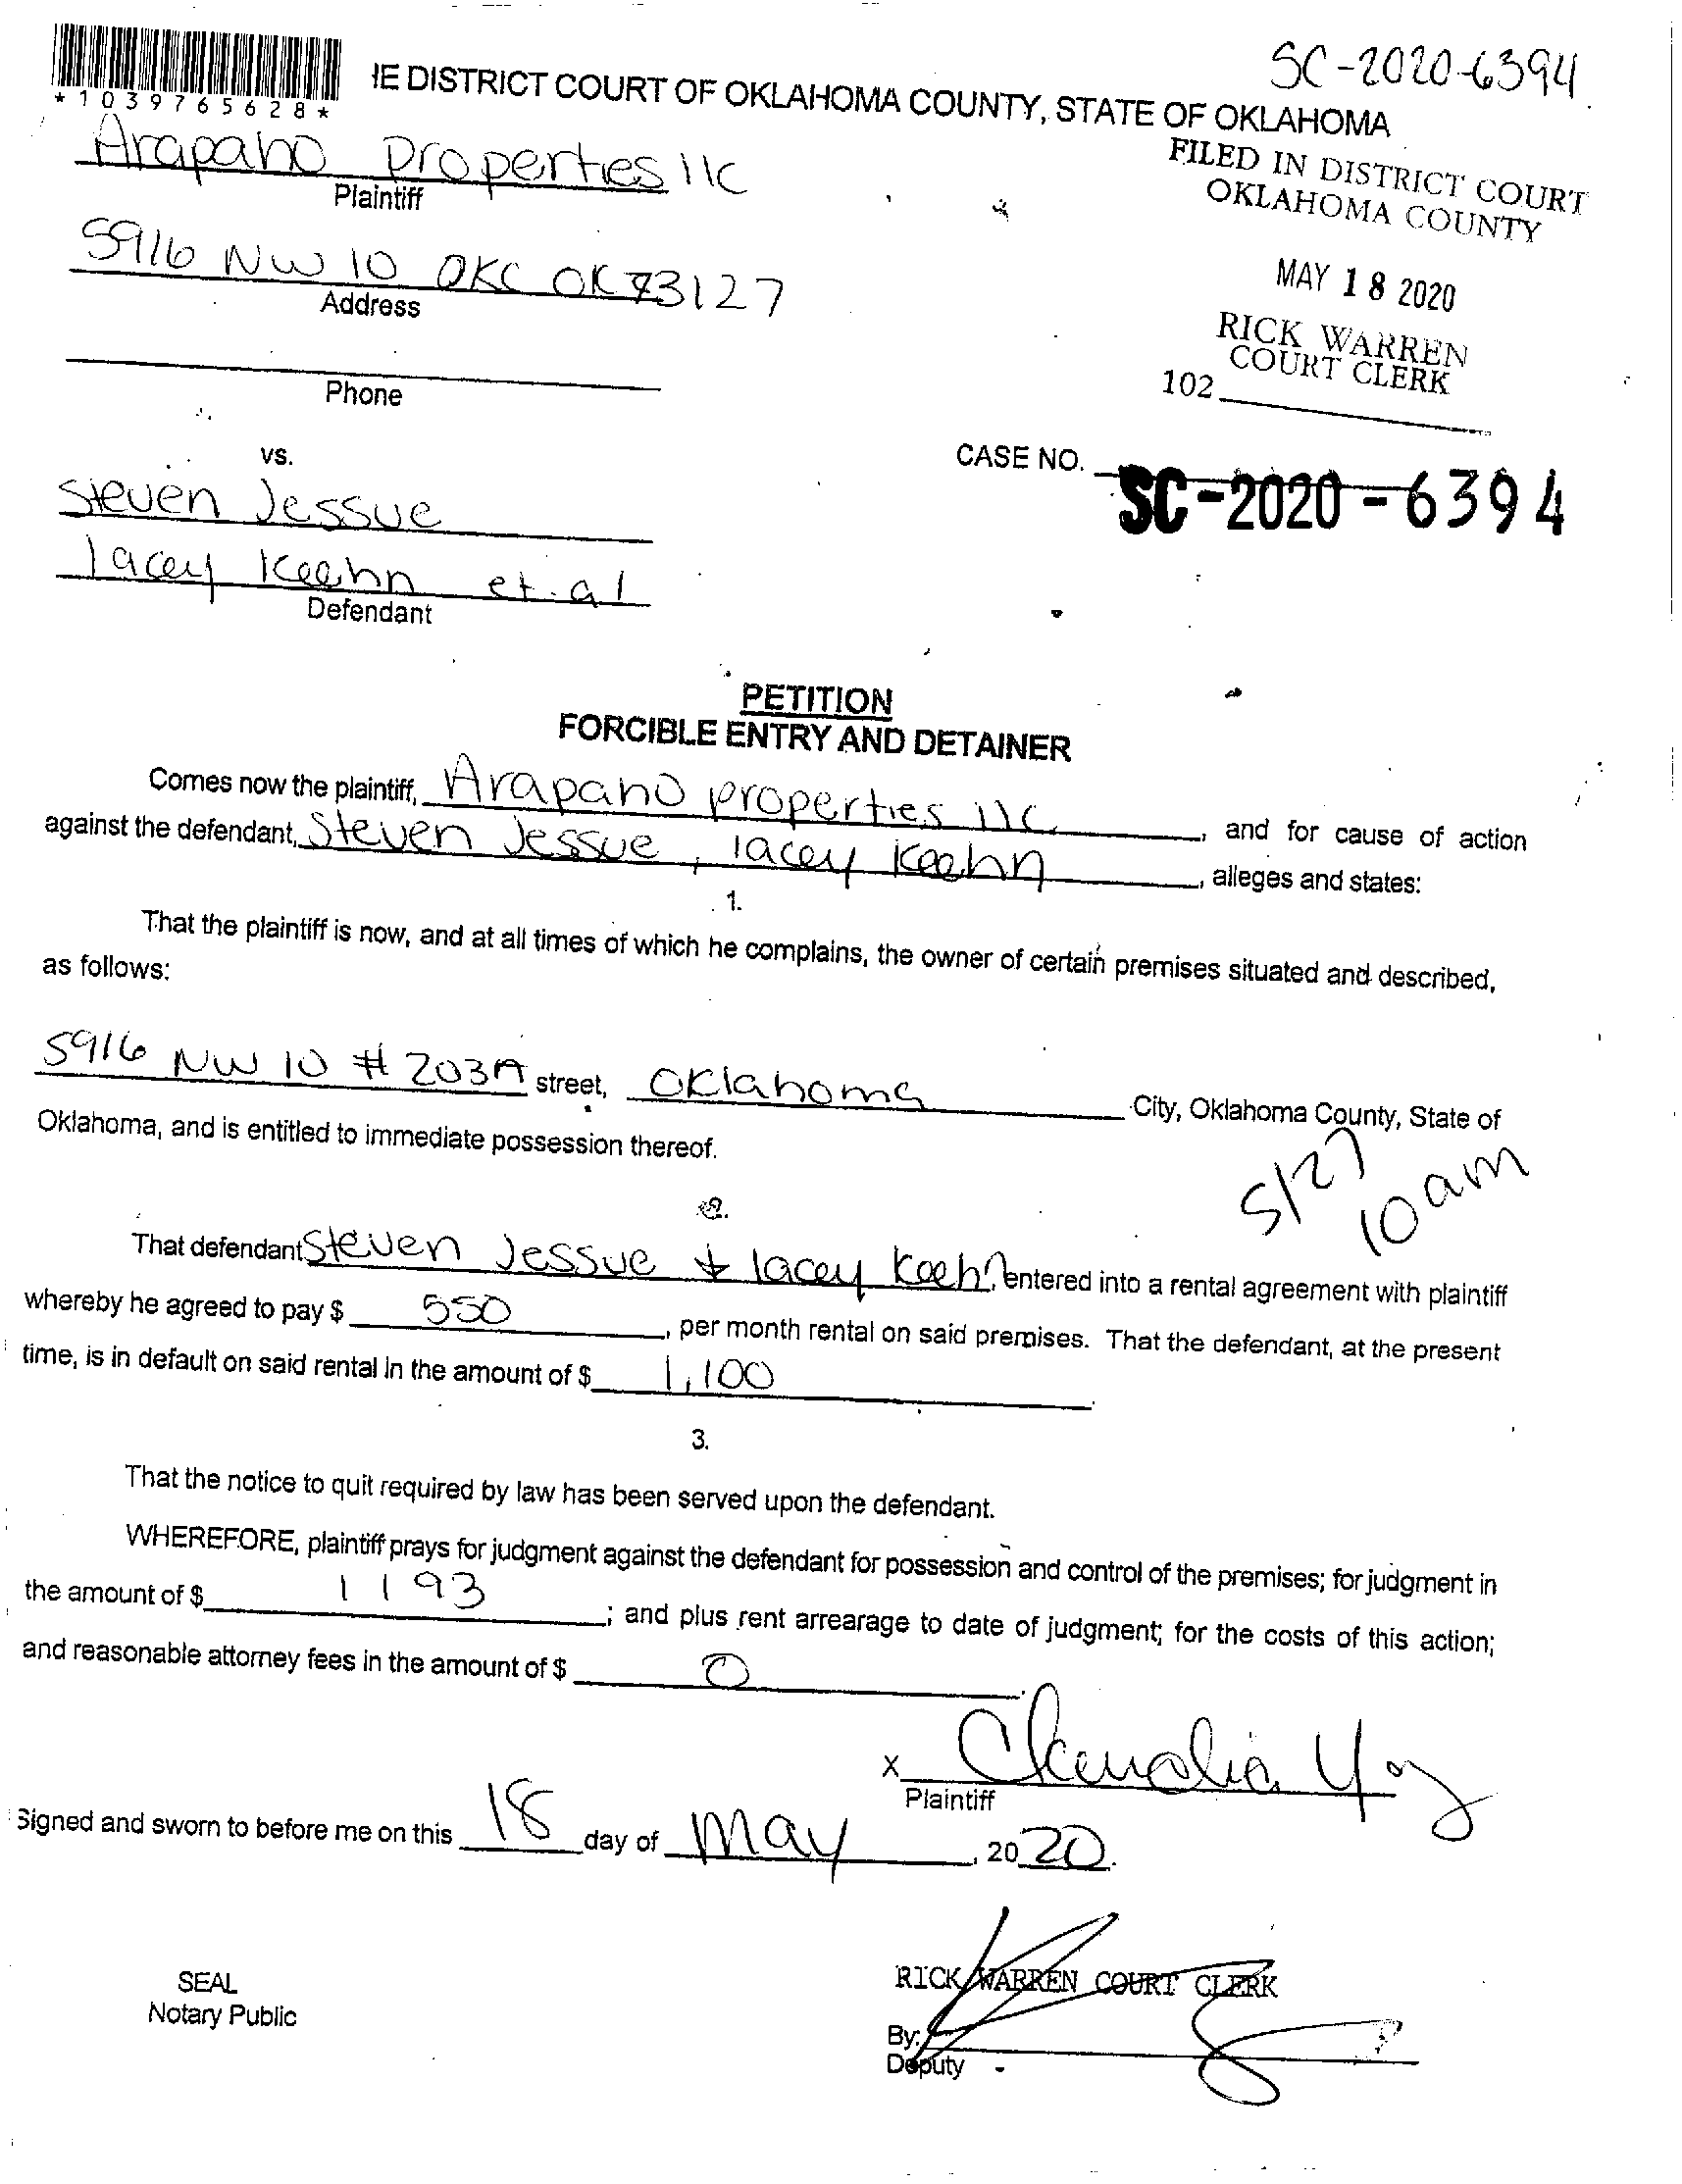 SC-2020-6394
*1039765628*
IE DISTRICT COURT OF OKLAHOMA COUNTY, STATE OF OKLAHOMA
Arapaho Properties llc
Plaintiff
FILED IN DISTRICT COURT
OKLAHOMA COUNTY
5916 NW 10 OKC OK 73127
Address
MAY 18 2020
RICK WARREN
COURT CLERK
102
Phone
vs.
CASE NO. SC-2020-6394
Steven Jessue
lacey Keehn et.al
Defendant
PETITION
FORCIBLE ENTRY AND DETAINER
Comes now the plaintiff, Arapaho properties llc, and for cause of action
against the defendant, Steven Jessue, lacey Keehn, alleges and states:
1.
That the plaintiff is now, and at all times of which he complains, the owner of certain premises situated and described,
as follows:
5916 NW 10 # 203A street, Oklahoma City, Oklahoma County, State of
Oklahoma, and is entitled to immediate possession thereof.
5/27
10 am
2.
That defendant Steven Jessue & lacey Keehn, entered into a rental agreement with plaintiff
whereby he agreed to pay $ 550, per month rental on said premises. That the defendant, at the present
time, is in default on said rental in the amount of $ 1,100.
3.
That the notice to quit required by law has been served upon the defendant.
WHEREFORE, plaintiff prays for judgment against the defendant for possession and control of the premises; for judgment in
the amount of $ 1193; and plus rent arrearage to date of judgment; for the costs of this action;
and reasonable attorney fees in the amount of $ 0.
X Claudia
Plaintiff
Signed and sworn to before me on this 18 day of May, 2020.
RICK WARREN COURT CLERK
SEAL
Notary Public
By:
Deputy